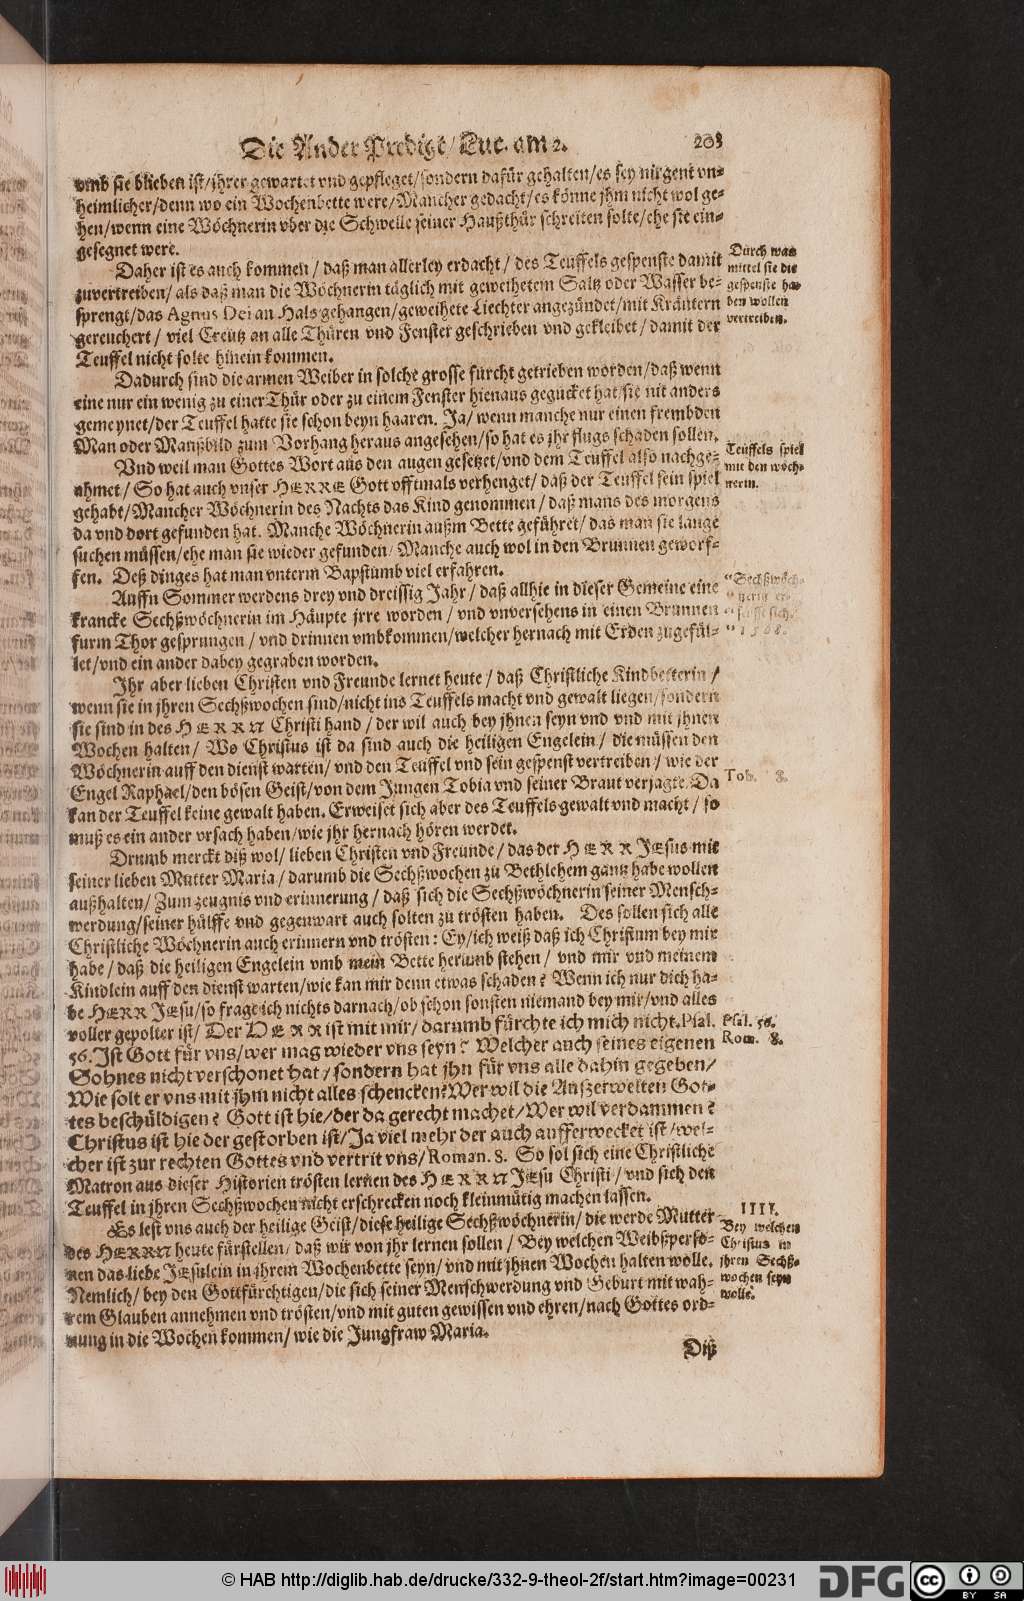 Die Ander Predigt/ Luc. am 2. 203
vmb sie blieben ist/jhrer gewartet vnd gepfleget/sondern dafür gehalten/es sey nirgent vn-
heimlicher/denn wo ein Wochenbette were/Mancher gedacht/es könne jhm nicht wol ge-
hen/wenn eine Wöchnerin vber die Schwelle seiner Haußthür schreiten solte/ehe sie ein-
gesegnet were.
Daher ist es auch kommen / daß man allerley erdacht / des Teuffels gespenste damit
zuvertreiben/ als daß man die Wöchnerin täglich mit geweihetem Saltz oder Wasser be-
sprengt/das Agnus Dei an Hals gehangen/geweihete Liechter angezündet/mit Kräutern
gereuchert / viel Creutz an alle Thüren vnd Fenster geschrieben vnd gekleibet / damit der
Teuffel nicht solte hinein kommen.
Durch was
mittel sie die
gespenste ha-
ben wollen
vertreiben.
Dadurch sind die armen Weiber in solche grosse furcht getrieben worden/daß wenn
eine nur ein wenig zu einer Thür oder zu einem Fenster hienaus gegucket hat/sie nit anders
gemeynet/der Teuffel hatte sie schon beyn haaren. Ja/ wenn manche nur einen frembden
Man oder Manßbild zum Vorhang heraus angesehen/so hat es jhr flugs schaden sollen.
Vnd weil man Gottes Wort aus den augen gesetzet/vnd dem Teuffel also nachge-
ahmet / So hat auch vnser HERRE Gott offtmals verhenget/ daß der Teuffel sein spiel
gehabt/Mancher Wöchnerin des Nachts das Kind genommen / daß mans des morgens
da vnd dort gefunden hat. Manche Wöchnerin außm Bette geführet/ das man sie lange
suchen müssen/ehe man sie wieder gefunden/ Manche auch wol in den Brunnen geworf-
fen. Deß dinges hat man vnterm Bapstumb viel erfahren.
Teuffels spiel
mit den wöch-
nerin.
Auffn Sommer werdens drey vnd dreissig Jahr / daß allhie in dieser Gemeine eine
krancke Sechßwöchnerin im Häupte jrre worden / vnd vnversehens in einen Brunnen
furm Thor gesprungen / vnd drinnen vmbkommen/welcher hernach mit Erden zugefül-
let/vnd ein ander dabey gegraben worden.
Sechßwöch-
nerin er-
seufft sich.
1568.
Ihr aber lieben Christen vnd Freunde lernet heute / daß Christliche Kindbetterin /
wenn sie in jhren Sechßwochen sind/nicht ins Teuffels macht vnd gewalt liegen/sondern
sie sind in des HERRN Christi hand / der wil auch bey jhnen seyn vnd vnd mit jhnen
Wochen halten / Wo Christus ist da sind auch die heiligen Engelein / die müssen den
Wöchnerin auff den dienst warten/ vnd den Teuffel vnd sein gespenst vertreiben / wie der
Engel Raphael/den bösen Geist/von dem Jungen Tobia vnd seiner Braut verjagte. Da
kan der Teuffel keine gewalt haben. Erweiset sich aber des Teuffels gewalt vnd macht / so
muß es ein ander vrsach haben/wie jhr hernach hören werdet.
Tob. 8.
Drumb merckt diß wol/ lieben Christen vnd Freunde / das der HERR JEsus mit
seiner lieben Mutter Maria / darumb die Sechßwochen zu Bethlehem gantz habe wollen
außhalten/ Zum zeugnis vnd erinnerung / daß sich die Sechßwöchnerin seiner Mensch-
werdung/seiner hülffe vnd gegenwart auch solten zu trösten haben. Des sollen sich alle
Christliche Wöchnerin auch erinnern vnd trösten: Ey/ich weiß daß ich Christum bey mir
habe / daß die heiligen Engelein vmb mein Bette herumb stehen / vnd mir vnd meinem
Kindlein auff den dienst warten/wie kan mir denn etwas schaden? Wenn ich nur dich ha-
be HERR JEsu/so frage ich nichts darnach/ob schon sonsten niemand bey mir/vnd alles
voller gepolter ist/ Der HERR ist mit mir/ darumb fürchte ich mich nicht. Psal.
56. Ist Gott für vns/wer mag wieder vns seyn? Welcher auch seines eigenen
Sohnes nicht verschonet hat / sondern hat jhn für vns alle dahin gegeben/
Wie solt er vns mit jhm nicht alles schencken? Wer wil die Außerwelten Got-
tes beschüldigen? Gott ist hie/der da gerecht machet/Wer wil verdammen?
Christus ist hie der gestorben ist/Ja viel mehr der auch aufferwecket ist/wel-
cher ist zur rechten Gottes vnd vertrit vns/Roman. 8. So sol sich eine Christliche
Matron aus dieser Historien trösten lernen des HERRN JEsu Christi / vnd sich den
Teuffel in jhren Sechßwochen nicht erschrecken noch kleinmütig machen lassen.
Psal. 56.
Rom. 8.
Es lest vns auch der heilige Geist/diese heilige Sechßwöchnerin/ die werde Mutter
des HERRN heute fürstellen/ daß wir von jhr lernen sollen / Bey welchen Weibßperso-
nen das liebe JEsulein in jhrem Wochenbette seyn/ vnd mit jhnen Wochen halten wolle.
Nemlich/ bey den Gottfürchtigen/die sich seiner Menschwerdung vnd Geburt mit wah-
rem Glauben annehmen vnd trösten/vnd mit guten gewissen vnd ehren/nach Gottes ord-
nung in die Wochen kommen/ wie die Jungfraw Maria.
IIII.
Bey welchen
Christus in
jhren Sechß-
wochen seyn
wolle.
Diß
© HAB http://diglib.hab.de/drucke/332-9-theol-2f/start.htm?image=00231
DFG
cc BY SA